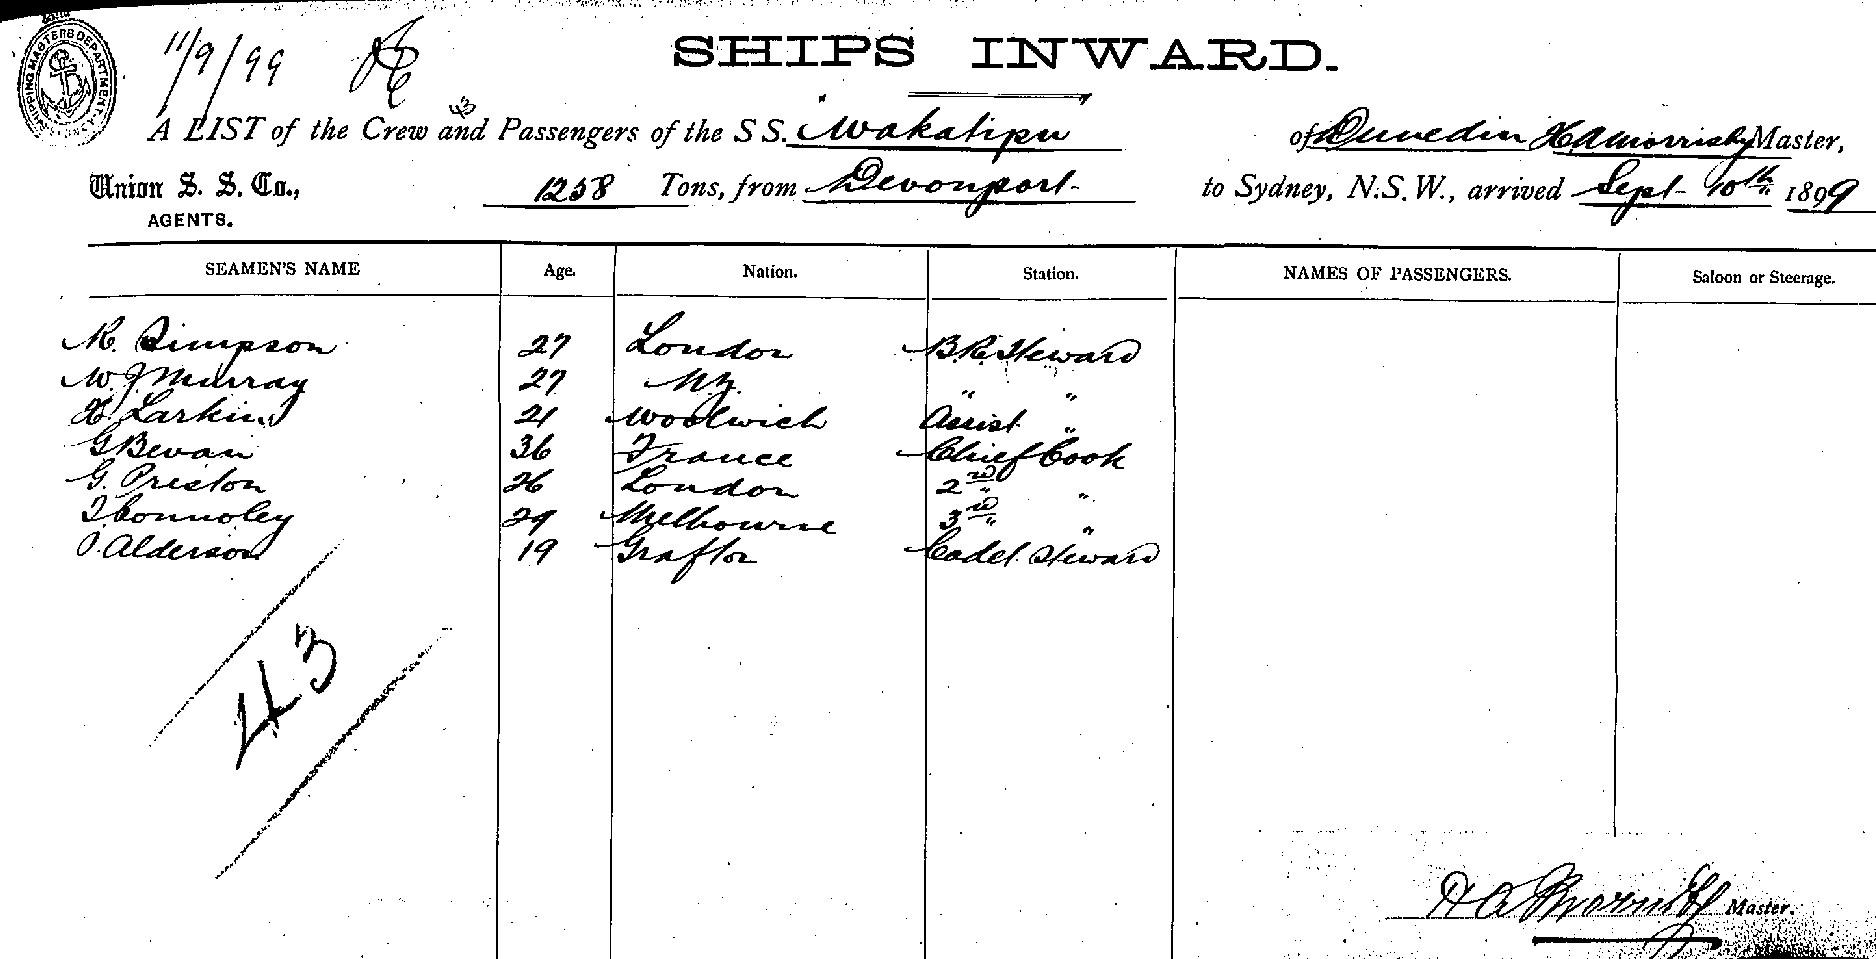 11/9/99
SHIPS INWARD.
43
A LIST of the Crew and Passengers of the S S. Wakatipu of Dunedin HAMorrisby Master,
Union S. S. Co., 1258 Tons, from Devonport to Sydney, N.S.W., arrived Sept 10th 1899
AGENTS.
SEAMEN'S NAME Age. Nation. Station. NAMES OF PASSENGERS. Saloon or Steerage.
R. Simpson 27 London B.R. Steward
W J Murray 27 NZ. " "
H. Larkin 21 Woolwich Assist "
G Bevan 36 France Chief Cook
G. Preston 26 London 2nd " "
T. Connoley 29 Melbourne 3rd " "
P. Alderson 19 Grafton Cadet Steward
43
H A Morrisby Master.